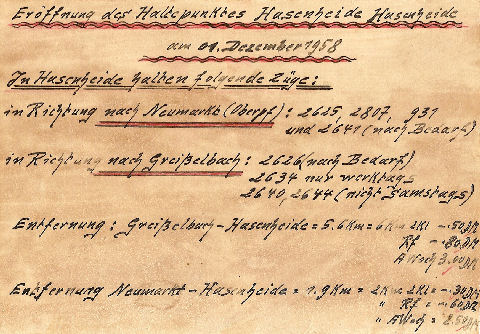 Eröffnung des Haltepunktes Hasenheide Hasenheide
am 01. Dezember 1958
In Hasenheide halten folgende Züge:
in Richtung nach Neumarkt (Oberpf): 2625, 2807, 931
und 2641 (nach Bedarf)
in Richtung nach Greißelbach: 2626 (nach Bedarf)
2634 nur werktags
2640, 2644 (nicht Samstags)
Entfernung: Greißelbach - Hasenheide = 5.6 Km = 6 Km 2Kl -.50 DM
Rf -.80 DM
AWoch 3,00 DM
Entfernung Neumarkt - Hasenheide = 1.9 Km = 2 Km 2Kl = -.30 DM
" Rf = -.60 DM
" AWoch = 2.50 DM